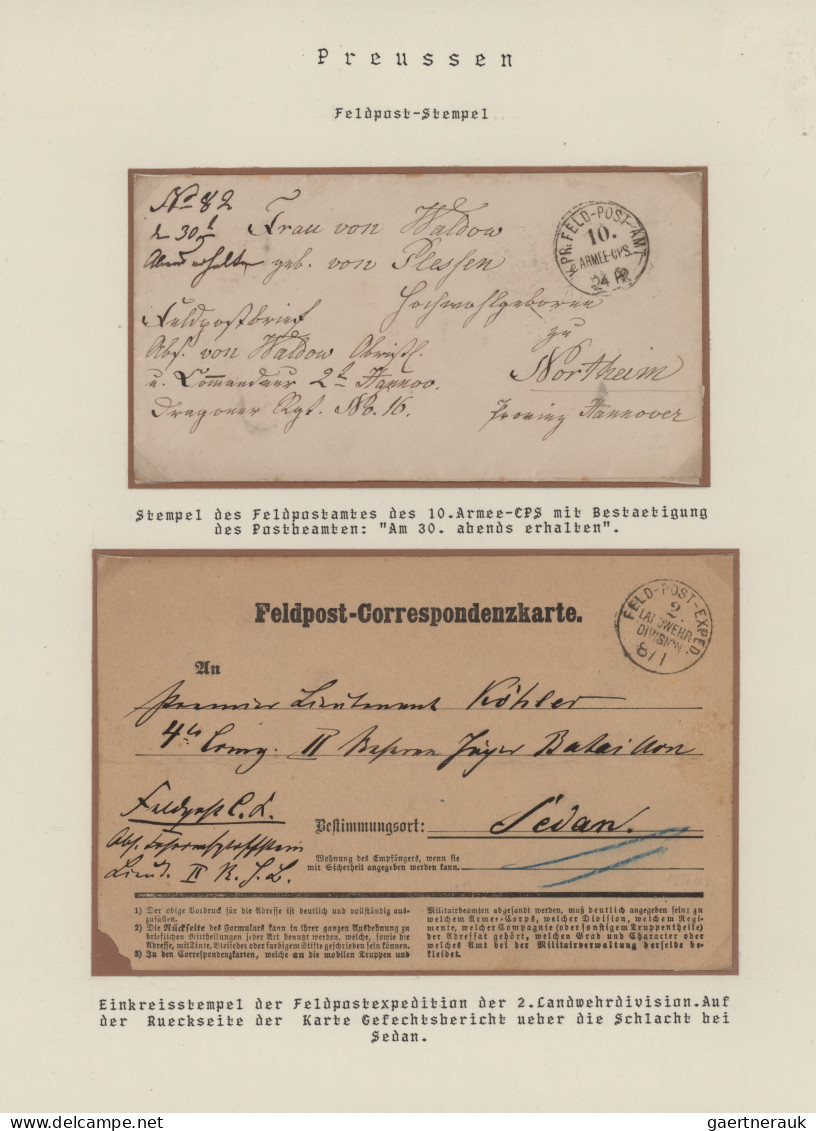 Preussen
Feldpost-Stempel
No 82
d 30t
Abend erhalten
Frau von Waldow
geb. von Plessen
Hochwohlgeboren
zu
Northeim
Provinz Hannover
Feldpostbrief
Abs. von Waldow Obristl.
u. Commandeur 2t Hannov.
Dragoner Rgt. No. 16.
K. PR. FELD-POST-AMT
10.
ARMEE-CPS.
Stempel des Feldpostamtes des 10.Armee-CPS mit Bestaetigung
des Postbeamten: "Am 30. abends erhalten".
Feldpost-Correspondenzkarte.
FELD-POST-EXPED.
2.
LANDWEHR-
DIVISION.
8/1
An
Premier Lieutenant Köhler
4te Comp. II Reserve Jäger Bataillon
Feldpost C. K.
Bestimmungsort: Sedan.
Abs.
Lieut. II R. J. B.
Wohnung des Empfängers, wenn sie
mit Sicherheit angegeben werden kann.
1) Der obige Vordruck für die Adresse ist deutlich und vollständig aus-
zufüllen.
2) Die Rückseite des Formulars kann in ihrer ganzen Ausdehnung zu
brieflichen Mittheilungen jeder Art benutzt werden, welche, sowie die
Adresse, mit Tinte, Bleifeder oder farbigem Stifte geschrieben sein können.
3) In den Correspondenzkarten, welche an die mobilen Truppen und
Militairbeamten abgesandt werden, muß deutlich angegeben sein: zu
welchem Armee-Corps, welcher Division, welchem Regi-
mente, welcher Compagnie (oder sonstigem Truppentheile)
der Adressat gehört, welchen Grad und Character oder
welches Amt bei der Militairverwaltung derselbe be-
kleidet.
Einkreisstempel der Feldpostexpedition der 2.Landwehrdivision.Auf
der Rueckseite der Karte Gefechtsbericht ueber die Schlacht bei
Sedan.
delcampe.net
gaertnerauk